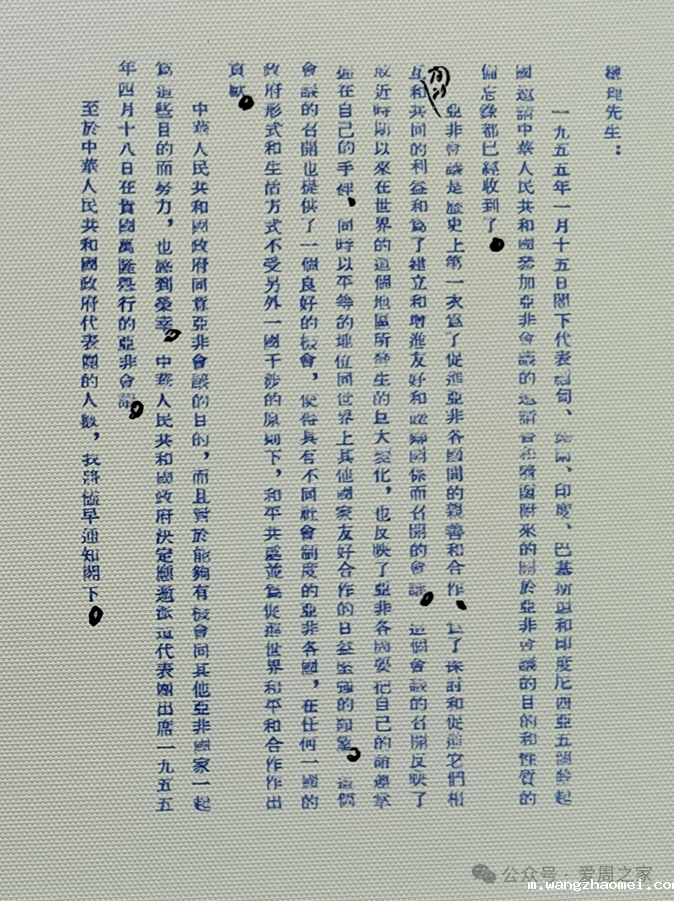 總理先生：
一九五五年一月十五日閣下代表緬甸、錫蘭、印度、巴基斯坦和印度尼西亞五個發起
國邀請中華人民共和國參加亞非會議的邀請書和隨函附來的關於亞非會議的目的和性質的
備忘錄都已經收到了。
亞非會議是歷史上第一次爲了促進亞非各國間的親善和合作、爲了探討和促進它們相
互和共同的利益和爲了建立和增進友好和睦鄰關係而召開的會議。這個會議的召開反映了
最近時期以來在世界的這個地區所發生的巨大變化，也反映了亞非各國要把自己的命運掌
握在自己的手裡、同時以平等的地位同世界上其他國家友好合作的日益堅強的願望。這個
會議的召開也提供了一個良好的機會，使得具有不同社會制度的亞非各國，在任何一國的
政府形式和生活方式不受另外一國干涉的原則下，和平共處並爲促進世界和平和合作作出
貢獻。
中華人民共和國政府同意亞非會議的目的，而且對於能夠有機會同其他亞非國家一起
爲這些目的而努力，也感到榮幸。中華人民共和國政府決定應邀派遣代表團出席一九五五
年四月十八日在貴國萬隆舉行的亞非會議。
至於中華人民共和國政府代表團的人數，我將儘早通知閣下。
公众号·爱周之家
m.wangzhaomei.com